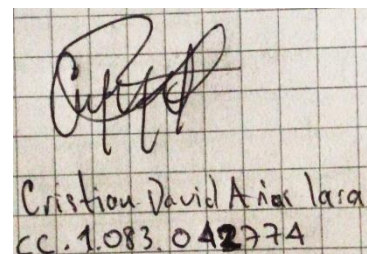 Cristian David Arias Lara
CC. 1.083.042774